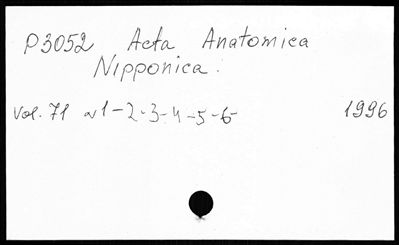 P3052 Acta Anatomica
Nipponica.
Vol. 71 N1-2-3-4-5-6- 1996